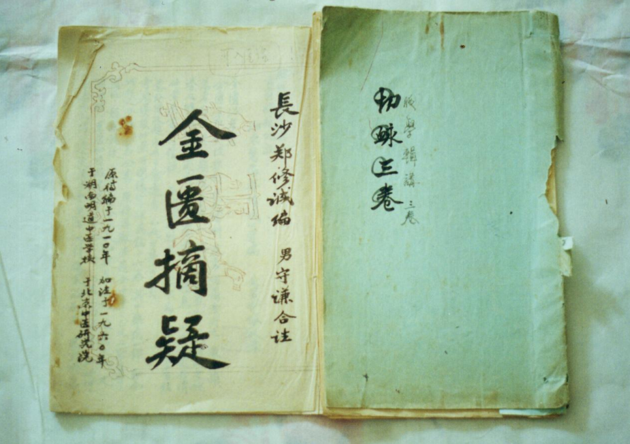 長沙郑修诚编 男守谦合註
金匮摘疑
原编于一九一〇年 加注于一九六〇年
于湖南明道中医学校 于北京中医研究院
脈學輯講三卷
三卷